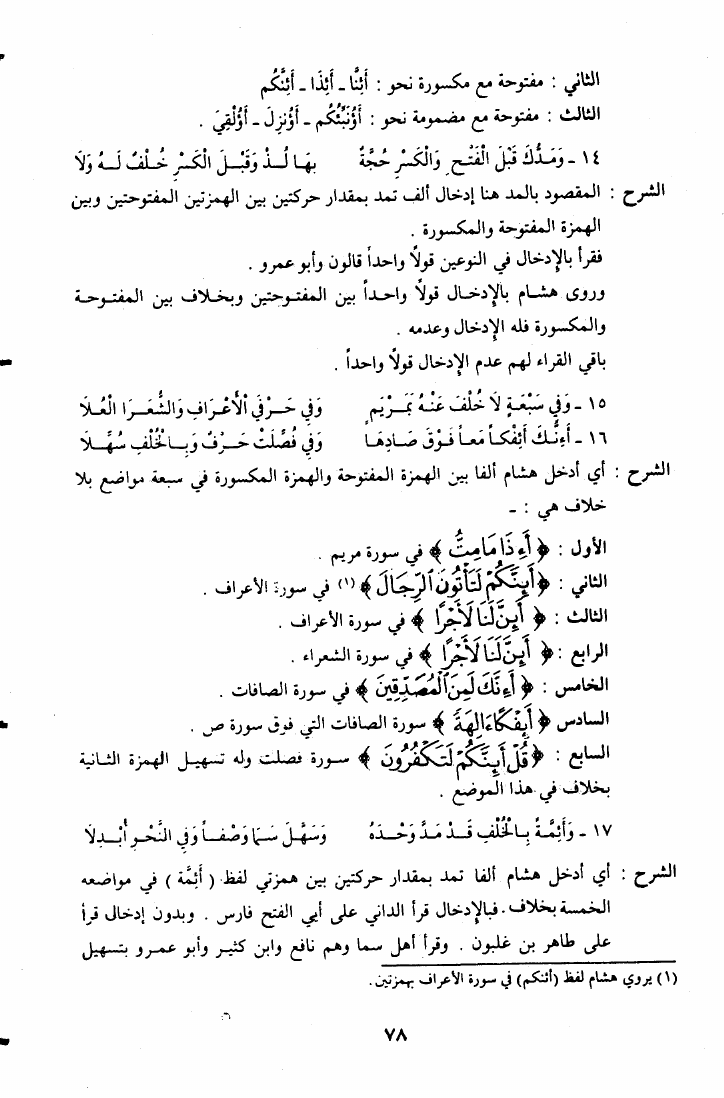 الثاني : مفتوحة مع مكسورة نحو : أَئِنَّا ـ أَئِذَا ـ أَئِنَّكُم
الثالث : مفتوحة مع مضمومة نحو : أَؤُنَبِّئُكُم ـ أَؤُنزِلَ ـ أَؤُلْقِيَ .
١٤ ـ وَمَدُّكَ قَبْلَ الْفَتْحِ وَالْكَسْرِ حُجَّةٌ بِهَا لُذْ وَقَبْلَ الْكَسْرِ خُلْفٌ لَهُ وَلَا
الشرح : المقصود بالمد هنا إدخال ألف تمد بمقدار حركتين بين الهمزتين المفتوحتين وبين
الهمزة المفتوحة والمكسورة .
فقرأ بالإدخال في النوعين قولًا واحداً قالون وأبو عمرو .
وروى هشام بالإدخال قولًا واحداً بين المفتوحتين وبخلاف بين المفتوحة
والمكسورة فله الإدخال وعدمه .
باقي القراء لهم عدم الإدخال قولًا واحداً .
١٥ ـ وَفِي سَبْعَةٍ لَا خُلْفَ عَنْهُ بِمَرْيَمٍ وَفِي حَرْفَيِ الْأَعْرَافِ وَالشُّعَرَا الْعُلَا
١٦ ـ أَءِنَّكَ أَئِفْكاً مَعاً فَوْقَ صَادِهَا وَفِي فُصِّلَتْ حَرْفٌ وَبِالْخُلْفِ سُهِّلَا
الشرح : أي أدخل هشام ألفا بين الهمزة المفتوحة والهمزة المكسورة في سبعة مواضع بلا
خلاف هي : ـ
الأول : ﴿ أَءِذَا مَامِتُّ ﴾ في سورة مريم .
الثاني : ﴿ أَئِنَّكُمْ لَتَأْتُونَ ٱلرِّجَالَ ﴾ (١) في سورة الأعراف .
الثالث : ﴿ أَئِنَّ لَنَا لَأَجْرًا ﴾ في سورة الأعراف .
الرابع : ﴿ أَئِنَّ لَنَا لَأَجْرًا ﴾ في سورة الشعراء .
الخامس : ﴿ أَءِنَّكَ لَمِنَ ٱلْمُصَدِّقِينَ ﴾ في سورة الصافات .
السادس ﴿ أَئِفْكًا ءَالِهَةً ﴾ سورة الصافات التي فوق سورة ص .
السابع : ﴿ قُلْ أَئِنَّكُمْ لَتَكْفُرُونَ ﴾ سورة فصلت وله تسهيل الهمزة الثانية
بخلاف في هذا الموضع .
١٧ ـ وَأَئِمَّةً بِالْخُلْفِ قَدْ مَدَّ وَحْدَهُ وَسَهِّلْ سَمَا وَصْفاً وَفِي النَّحْوِ أُبْدِلَا
الشرح : أي أدخل هشام ألفا تمد بمقدار حركتين بين همزتي لفظ ( أَئِمَّة ) في مواضعه
الخمسة بخلاف . فبالإدخال قرأ الداني على أبي الفتح فارس . وبدون إدخال قرأ
على طاهر بن غلبون . وقرأ أهل سما وهم نافع وابن كثير وأبو عمرو بتسهيل
(١) يروي هشام لفظ (أئنكم) في سورة الأعراف بهمزتين.
٧٨